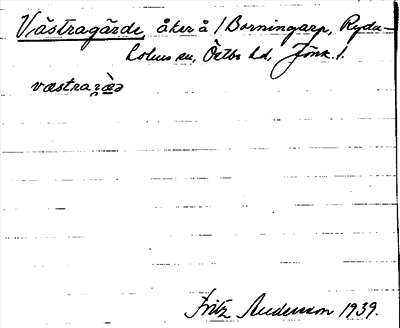 Västragärde, åker å 1 Borningarp, Ryda-
holms sn, Östbo hd, Jönk. l.
Fritz Andersson 1939.